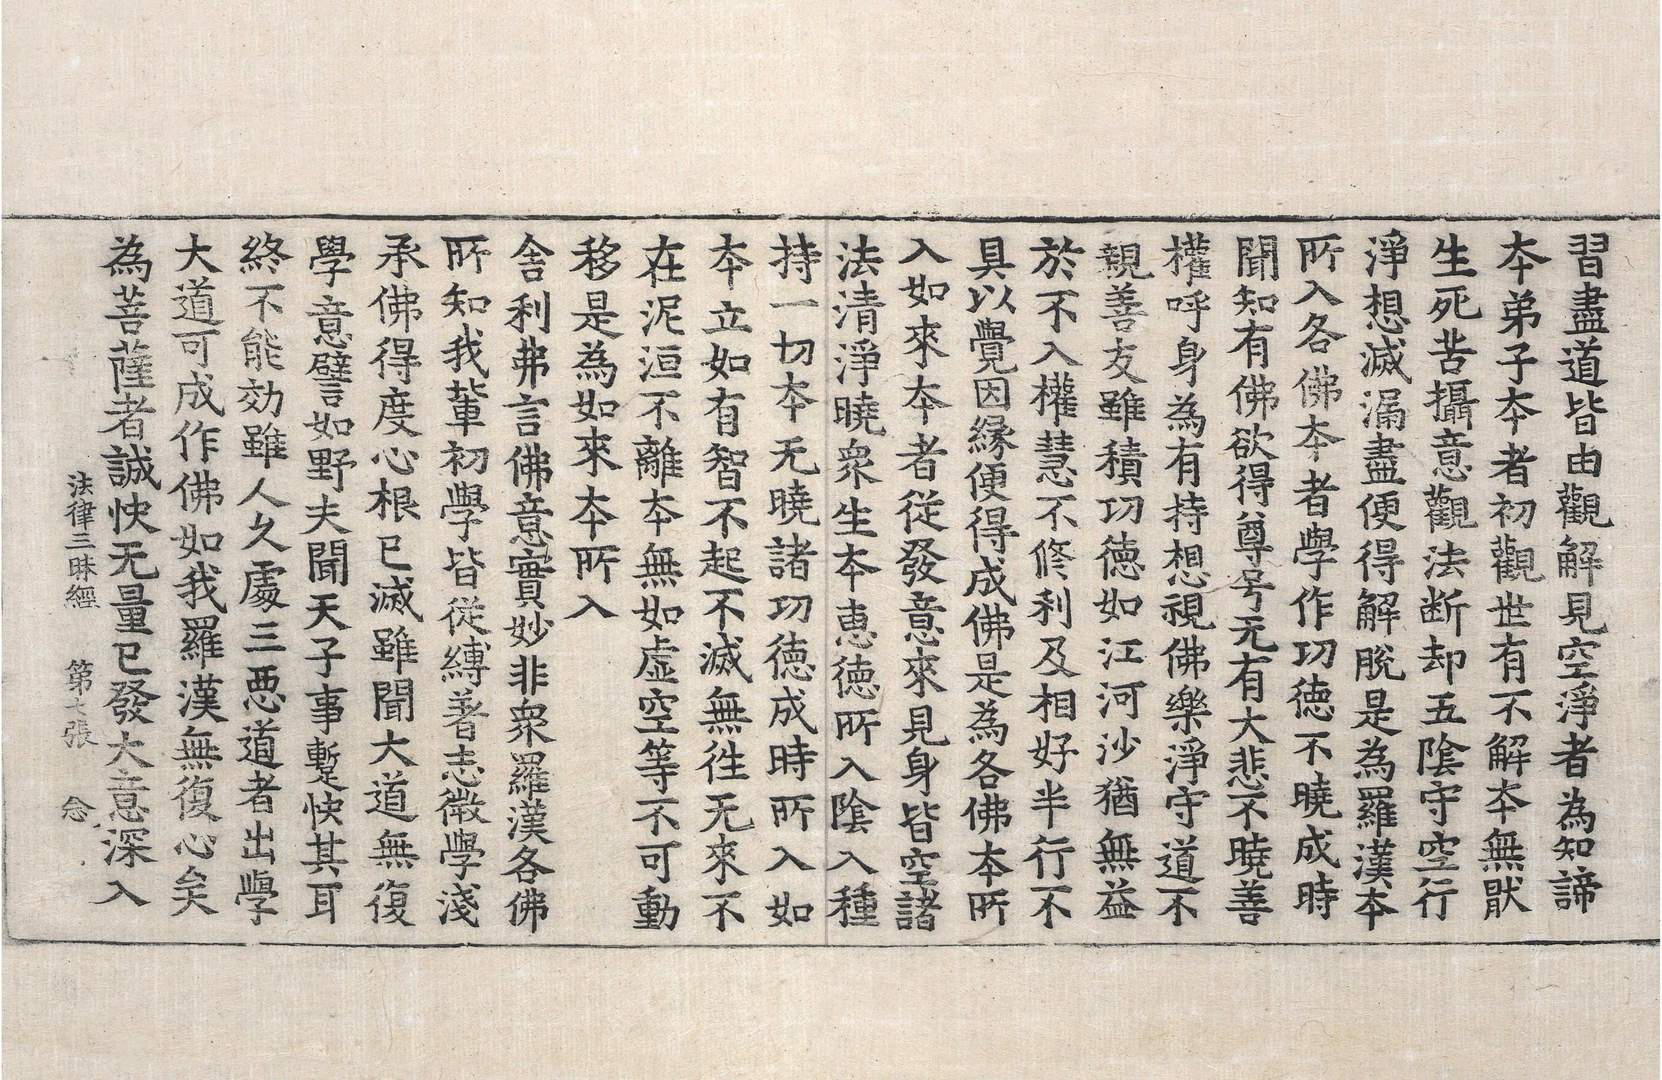 習盡道皆由觀解見空淨者為知諦
夲弟子夲者初觀世有不解夲無猒
生死苦攝意觀法断却五陰守空行
淨想滅漏盡便得解脫是為羅漢夲
所入各佛夲者學作功德不曉成時
聞知有佛欲得尊号无有大悲不曉善
權呼身為有持想視佛樂淨守道不
親善友雖積功德如江河沙猶無益
於不入權慧不修利及相好半行不
具以覺因緣便得成佛是為各佛夲所
入如來夲者從發意來見身皆空諸
法清淨曉衆生夲恵德所入陰入種
持一切夲无曉諸功德成時所入如
夲立如有智不起不滅無徃无來不
在泥洹不離夲無如虚空等不可動
移是為如來夲所入
舎利弗言佛意實妙非衆羅漢各佛
所知我輩初學皆從縛著志微學淺
承佛得度心根已滅雖聞大道無復
學意譬如野夫聞天子事暫快其耳
終不能効雖人久處三悪道者出學
大道可成作佛如我羅漢無復心矣
為菩薩者誠快无量已發大意深入
法律三昧經 第七張 念